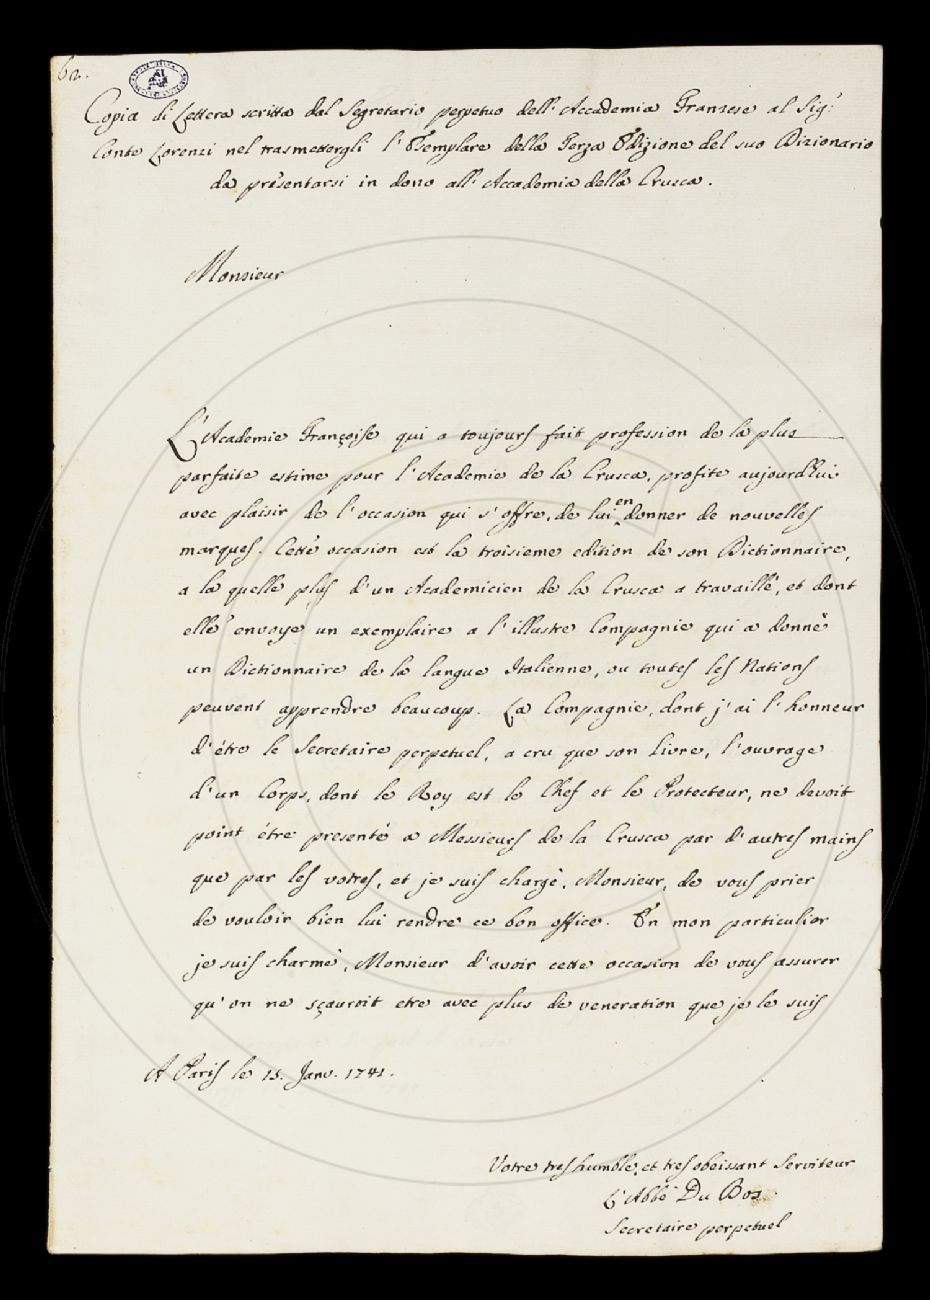 62.
Copia di Lettera scritta dal Segretario perpetuo dell' Accademia Franzese al Sig:
Conte Lorenzi nel trasmettergli l'Esemplare della Terza Edizione del suo Dizionario
da presentarsi in dono all' Accademia della Crusca.
Monsieur
L'Academie Françoise qui a toujours fait profession de la plus
parfaite estime pour l'Academie de la Crusca, profite aujourd'hui
avec plaisir de l'occasion qui s'offre, de lui en donner de nouvelles
marques. Cette occasion est la troisieme edition de son Dictionnaire,
a la quelle plus d'un Academicien de la Crusca a travaillé, et dont
elle envoye un exemplaire a l'illustre Compagnie qui a donné
un Dictionnaire de la langue Italienne, ou toutes les Nations
peuvent apprendre beaucoup. La Compagnie, dont j'ai l'honneur
d'étre le Secretaire perpetuel, a cru que son Livre, l'ouvrage
d'un Corps, dont le Roy est le Chef et le Protecteur, ne devoit
point étre presenté a Messieurs de la Crusca par d'autres mains
que par les votres, et je suis chargé, Monsieur, de vous prier
de vouloir bien lui rendre ce bon office. En mon particulier
je suis charmé, Monsieur d'avoir cette occasion de vous assurer
qu'on ne sçauroit etre avec plus de veneration que je le suis
A Paris le 15. Janv. 1741.
Votre tres humble, et tres obeissant Serviteur
L'Abbé Du Bos
Secretaire perpetuel